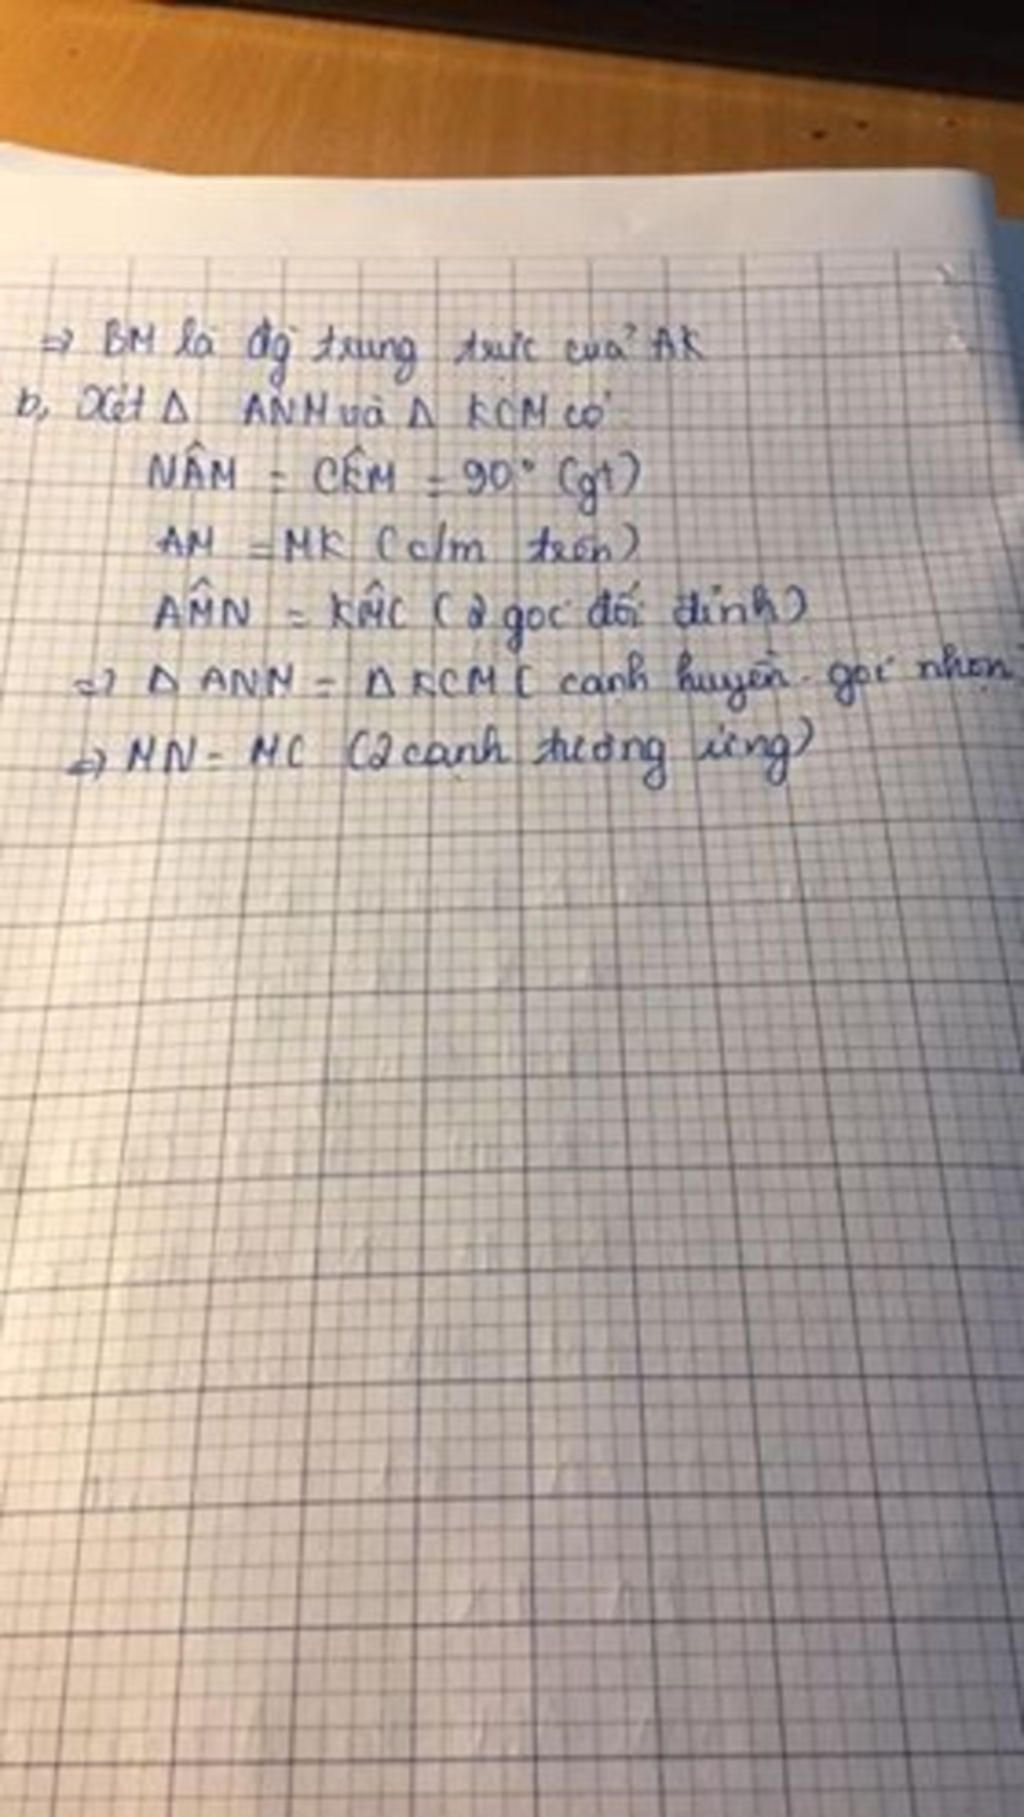 => BM là đg trung trực của AK
b, Xét Δ ANM và Δ KCM có
NÂM = CK̂M = 90° (gt)
AM = MK (c/m trên)
AM̂N = KM̂C (2 góc đối đỉnh)
=> Δ ANM = Δ KCM ( cạnh huyền - góc nhọn
=> MN = MC (2 cạnh tương ứng)